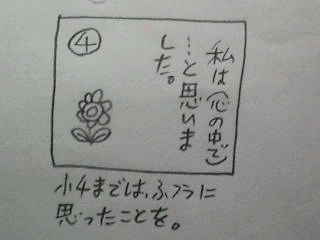 ④
私は(心の中で)
…と思いま
した。
小4までは、ふつうに
思ったことを。